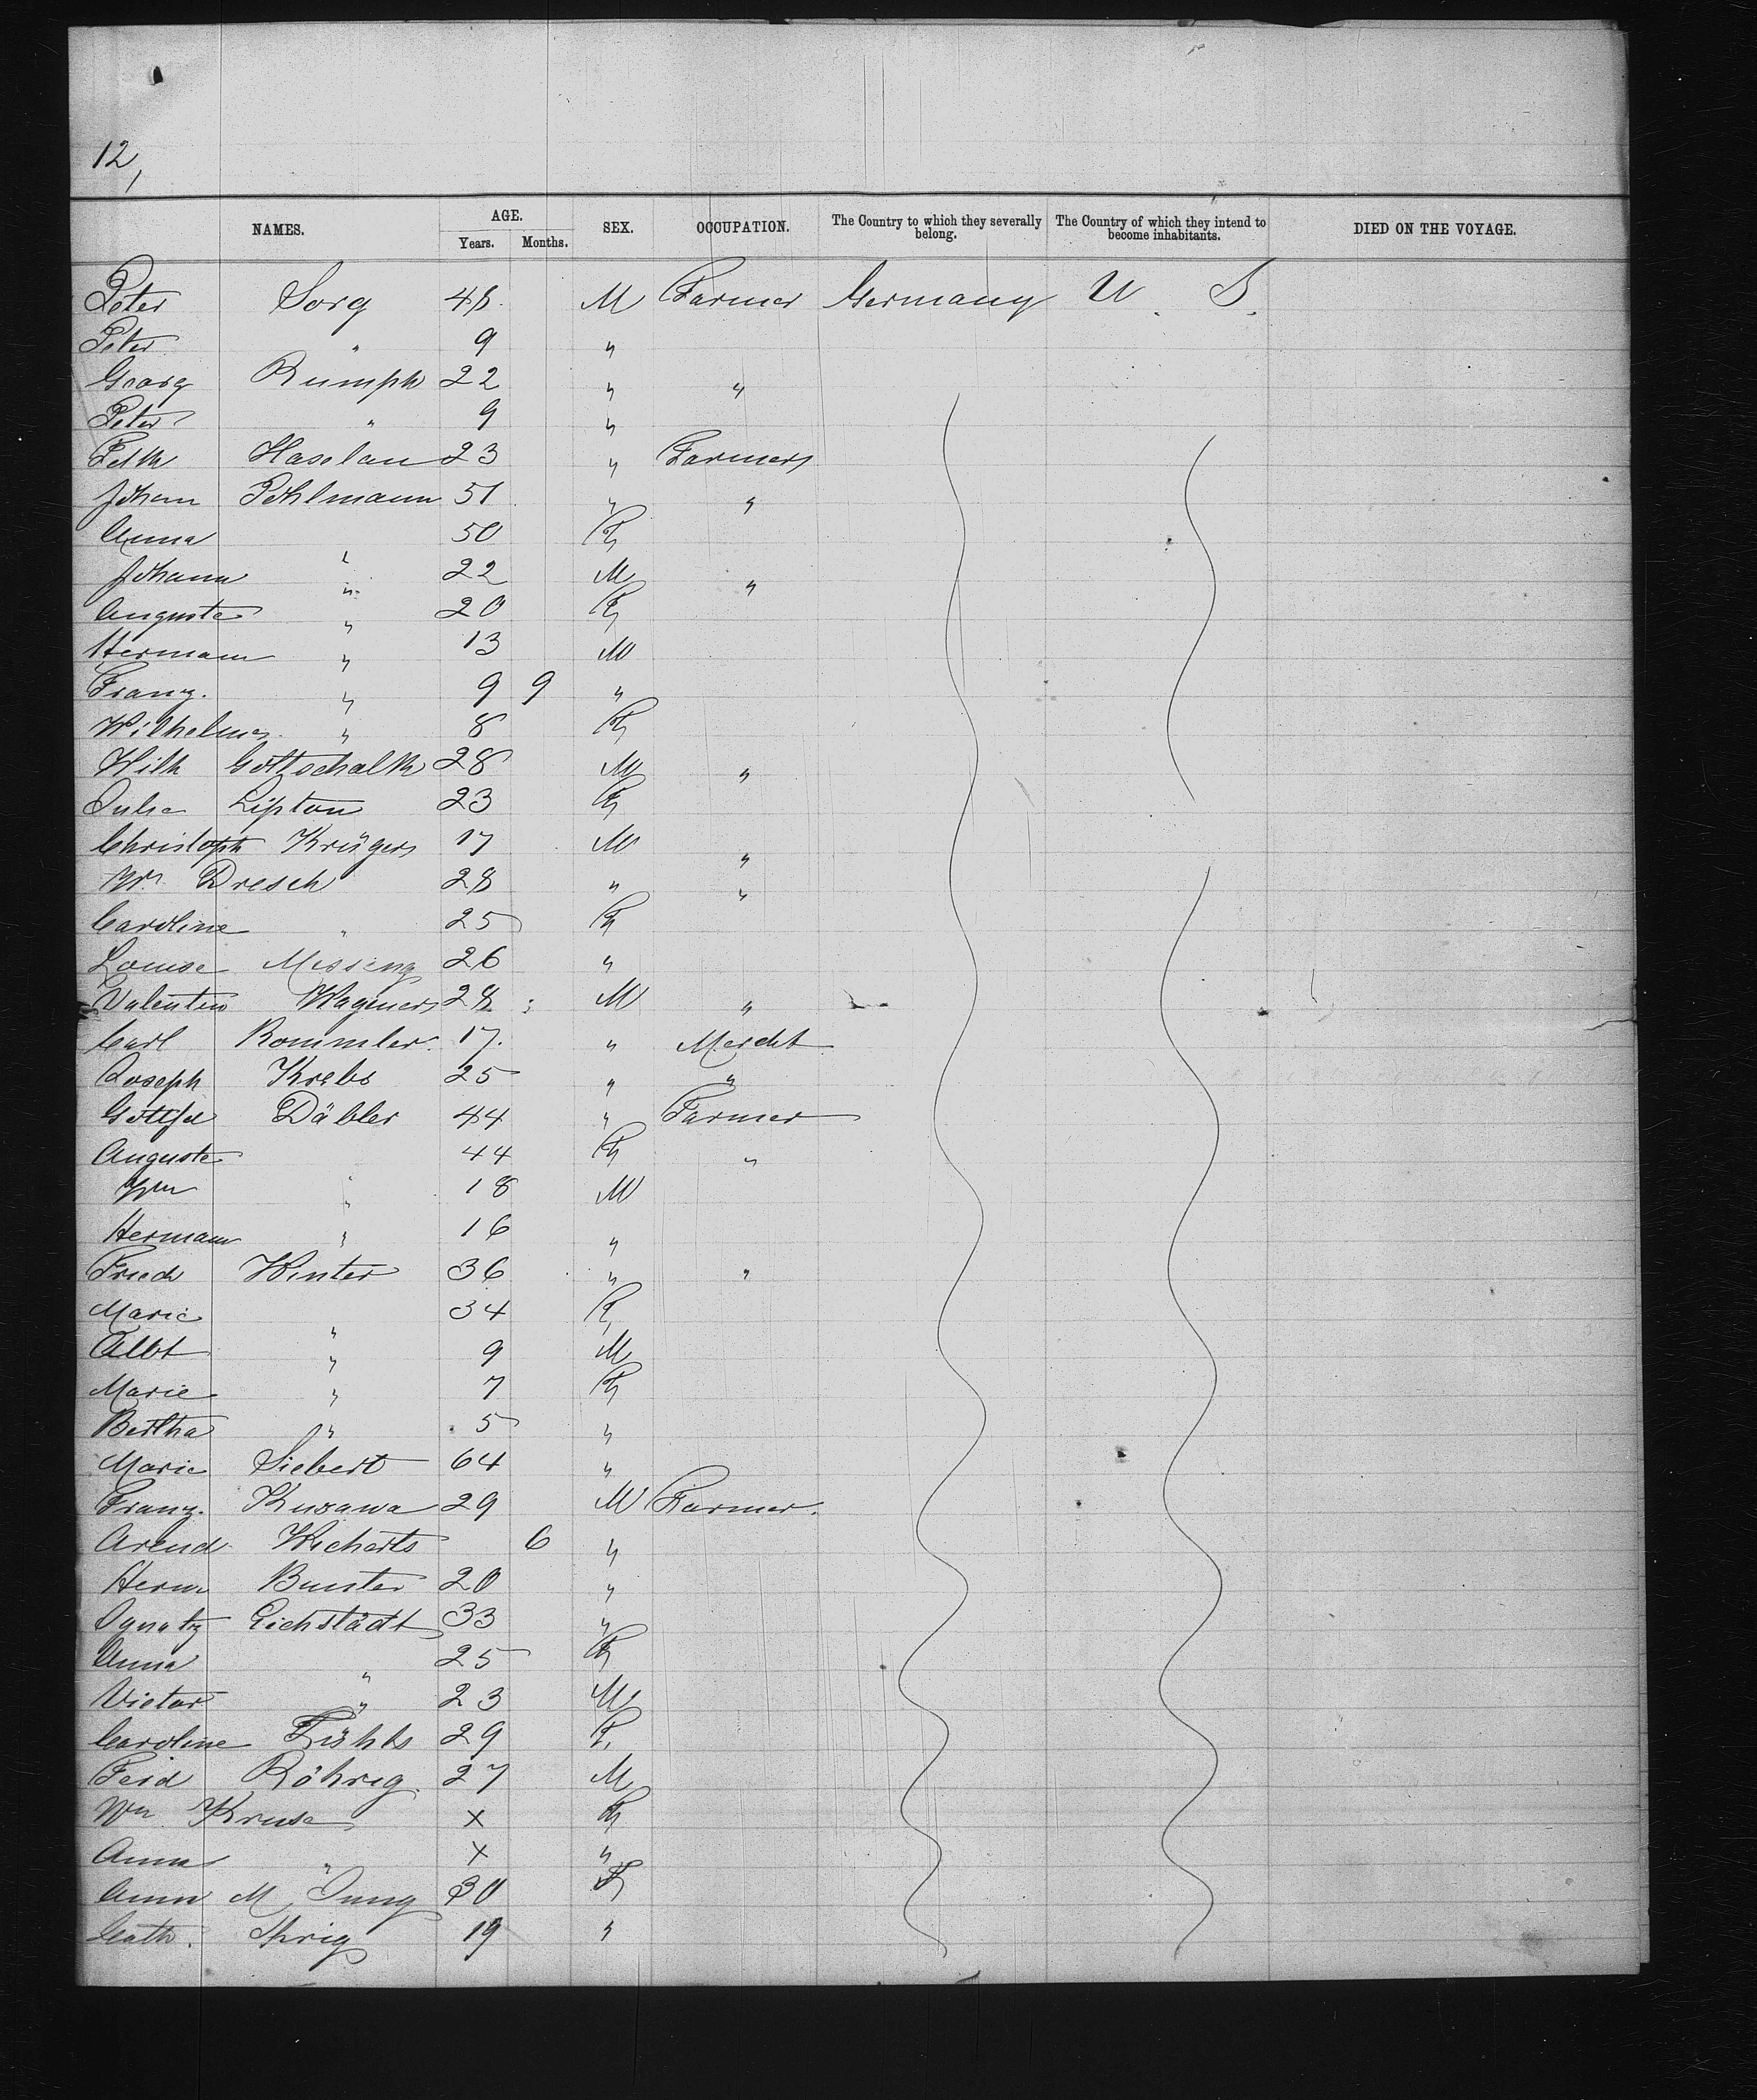 12,
NAMES. AGE. Years. Months. SEX. OCCUPATION. The Country to which they severally belong. The Country of which they intend to become inhabitants. DIED ON THE VOYAGE.
Peter Sorg 48. M Farmer Germany U. S.
Peter " 9 "
Georg Rumph 22 " "
Peter " 9 "
Haselau 23 " Farmer
Johann Pohlmann 51 " "
Anna " 50 F
Johann " 22 M "
Auguste " 20 F
Hermann " 13 M
Franz. " 9 9 "
Wilhelm " 8 F
Wilh Gottschalk 28 M "
Julie Lipton 23 F
Christoph Krüger 17 M "
Wm Dresch 28 " "
Caroline " 25 F
Louise Messing 26 "
Valentin Wagner 28 M "
Carl Rommler. 17. " Mercht
Joseph Krebs 25 " "
Gottfd Däbler 44 " Farmer
Auguste " 44 F "
Wm " 18 M
Hermann " 16 "
Friedr Winter 36 " "
Marie " 34 F
Albt " 9 M
Marie " 7 F
Bertha " 5 "
Marie Siebert 64 "
Franz. Kuzawa 29 M Farmer.
Arend Wicherts 6 "
Herm Buster 20 "
Ignatz Eichstädt 33 "
Anna " 25 F
Victor " 23 M
Caroline 29 F
Ferd Röhrig. 27 M
Wm Kruse x F
Anna " x "
Anna M Jung 30 F
Cath. Ihrig 19 "